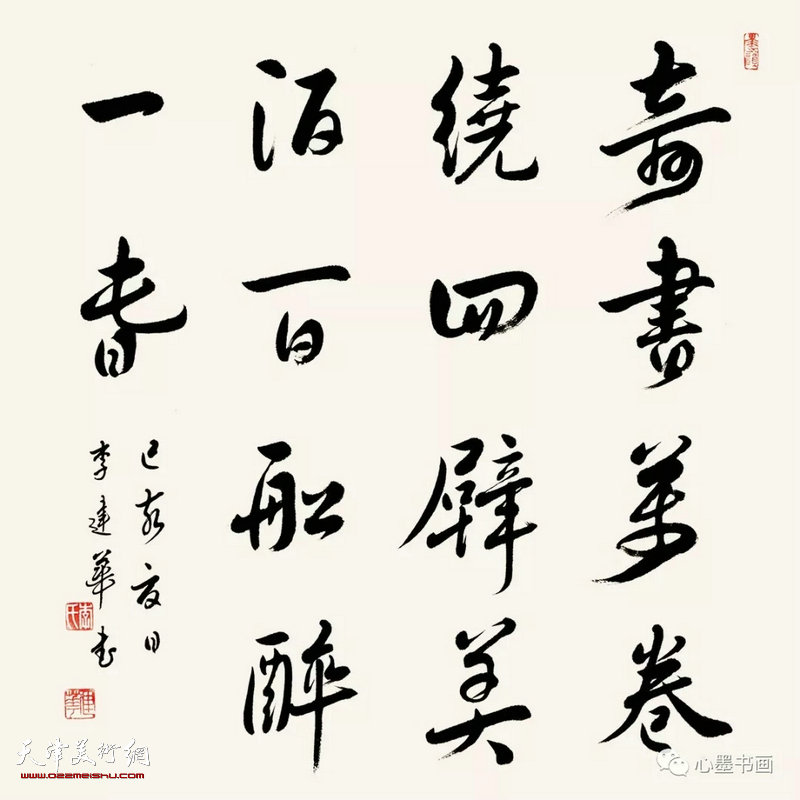 奇書萬卷
繞四壁美
酒百船醉
一春
己亥夏日
李建華书
李氏
建華
天津美術網
www.022meishu.com
心墨书画